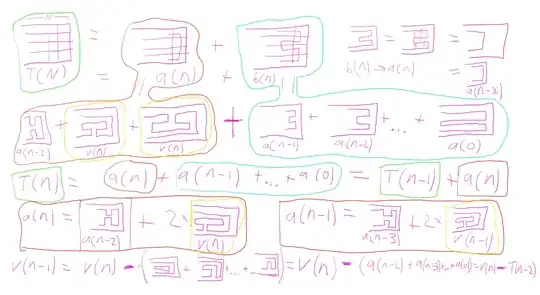 N
= +
T(N) = a(n) + b(n)
b(n) → a(n) = a(n-x)
a(n-2) + v(n) + v(n) + a(n-1) + a(n-2) + ... + a(0)
T(n) = a(n) + a(n-1) + ... + a(0) = T(n-1) + a(n)
a(n) = a(n-2) + 2x v(n) a(n-1) = a(n-3) + 2x v(n-1)
v(n-1) = v(n) - ( + + ... + ) = v(n) - (a(n-2) + a(n-3) + ... + a(0)) = v(n) - T(n-2)